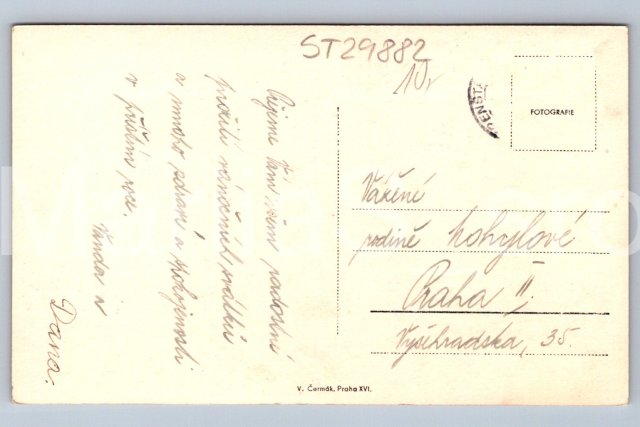 ST29882
10,-
FOTOGRAFIE
Přejeme Vám všem radostné
prožití vánočních svátků
a mnoho zdraví a spokojenosti
v příštím roce.
Vanda a
Dana.
Vážené
rodině
Praha II.
Vyšehradská, 35.
V. Čermák, Praha XVI.